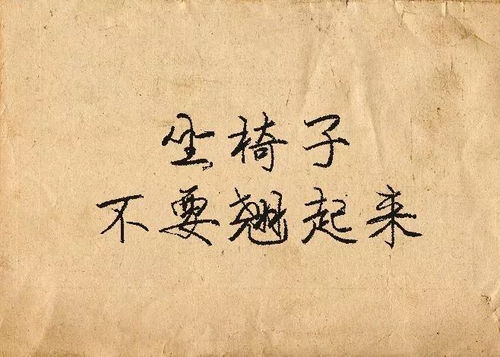 坐椅子
不要翘起来